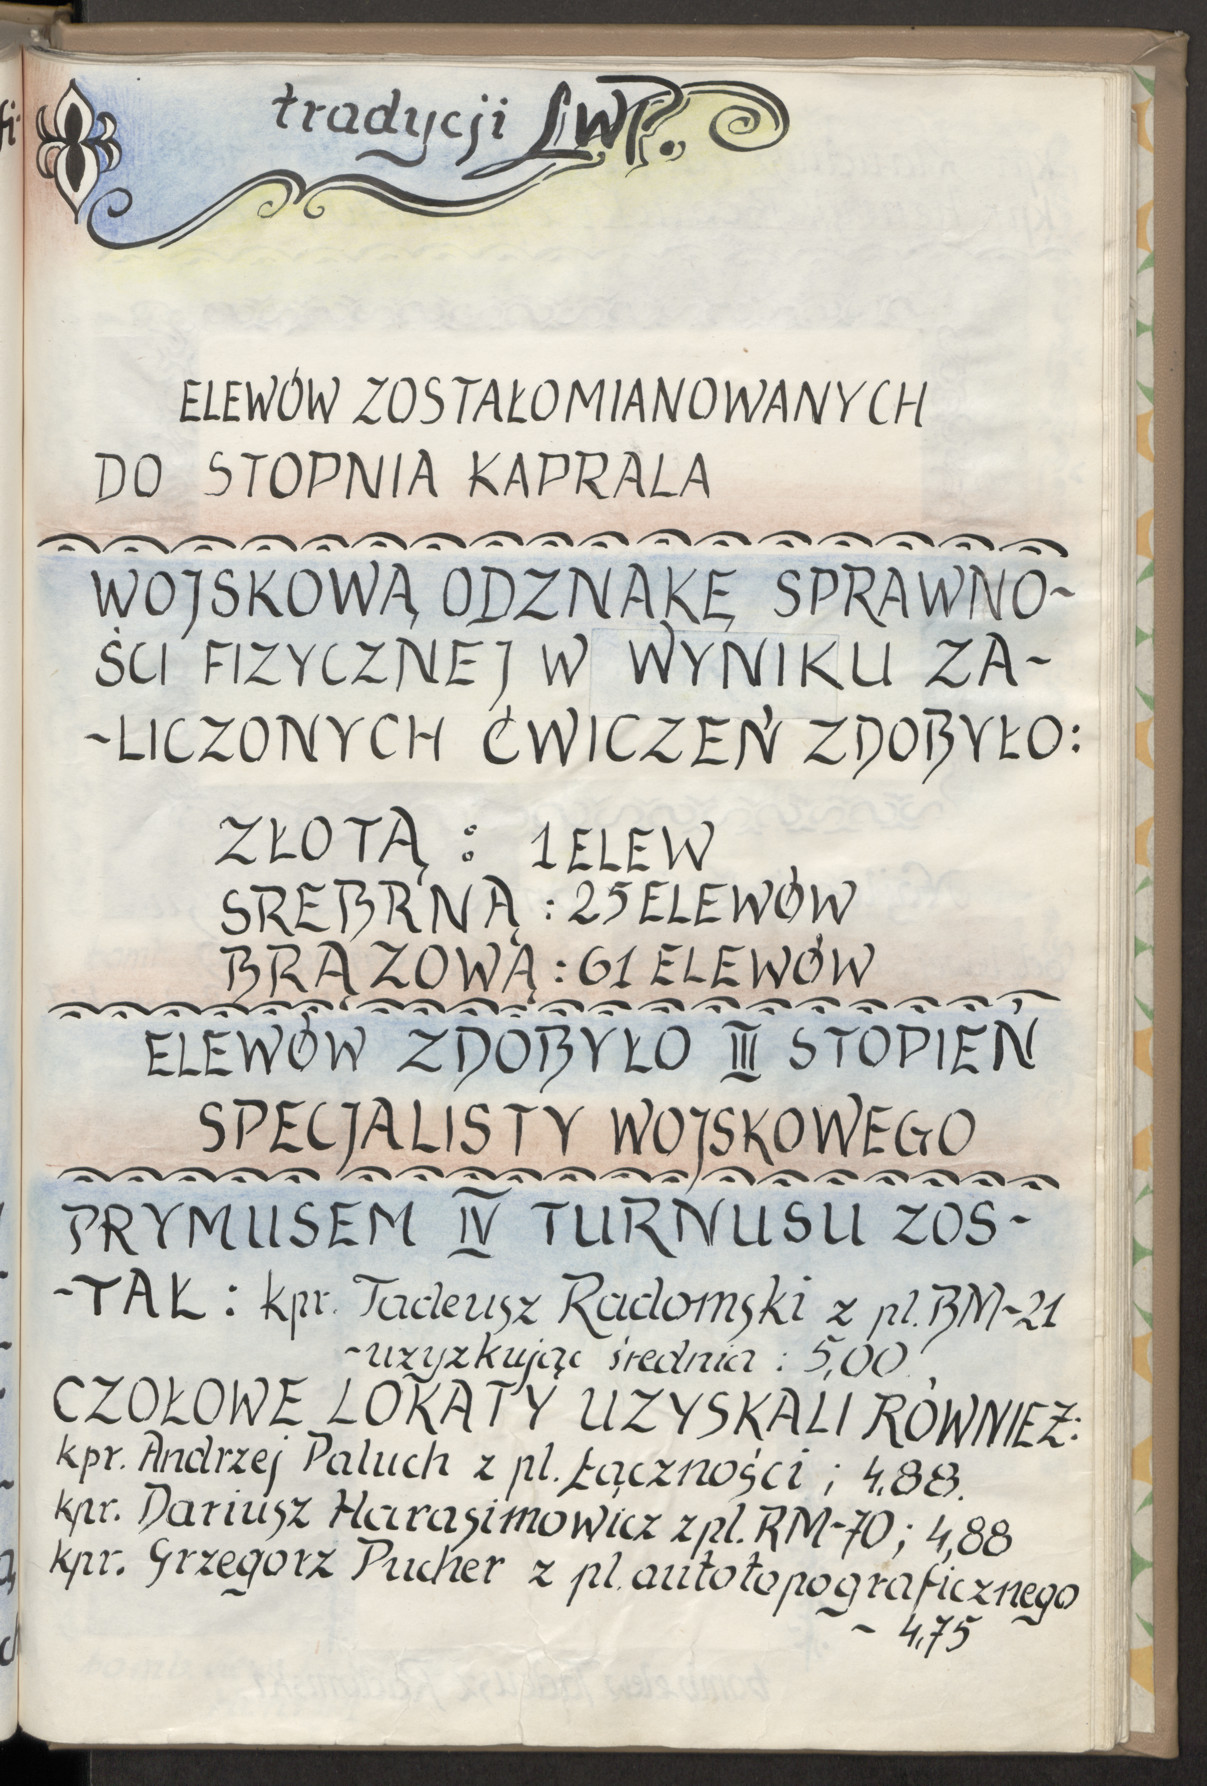 tradycji L.W.P.
ELEWÓW ZOSTAŁO MIANOWANYCH
DO STOPNIA KAPRALA
WOJSKOWĄ ODZNAKĘ SPRAWNO-
ŚCI FIZYCZNEJ W WYNIKU ZA-
-LICZONYCH ĆWICZEŃ ZDOBYŁO:
ZŁOTĄ : 1 ELEW
SREBRNĄ : 25 ELEWÓW
BRĄZOWĄ : 61 ELEWÓW
ELEWÓW ZDOBYŁO III STOPIEŃ
SPECJALISTY WOJSKOWEGO
PRYMUSEM IV TURNUSU ZOS-
-TAŁ : kpr. Tadeusz Radomski z pl. BM-21
-uzyzkując średnia : 5,00.
CZOŁOWE LOKATY UZYSKALI RÓWNIEŻ:
kpr. Andrzej Paluch z pl. Łączności ; 4,88.
kpr. Dariusz Harasimowicz z pl. RM-70 ; 4,88
kpr. Grzegorz Pucher z pl. autotopograficznego
- 4,75